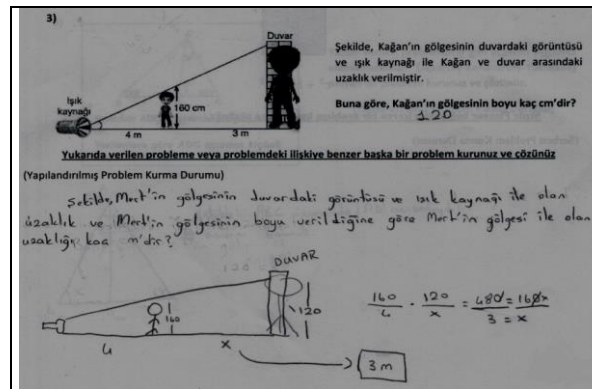 3)
Duvar
Şekilde, Kağan'ın gölgesinin duvardaki görüntüsü
ve ışık kaynağı ile Kağan ve duvar arasındaki
uzaklık verilmiştir.
Işık
kaynağı
160 cm
4 m
3 m
Buna göre, Kağan'ın gölgesinin boyu kaç cm'dir?
120
Yukarıda verilen probleme veya problemdeki ilişkiye benzer başka bir problem kurunuz ve çözünüz
(Yapılandırılmış Problem Kurma Durumu)
Şekilde, Mert'in gölgesinin duvardaki görüntüsü ve ışık kaynağı ile olan
uzaklık ve Mert'in gölgesinin boyu verildiğine göre Mert'in gölgesi ile olan
uzaklığı kaç m'dir?
DUVAR
160
120
4
x
3 m
160/4 · 120/x = 480/3 = 160x/= x